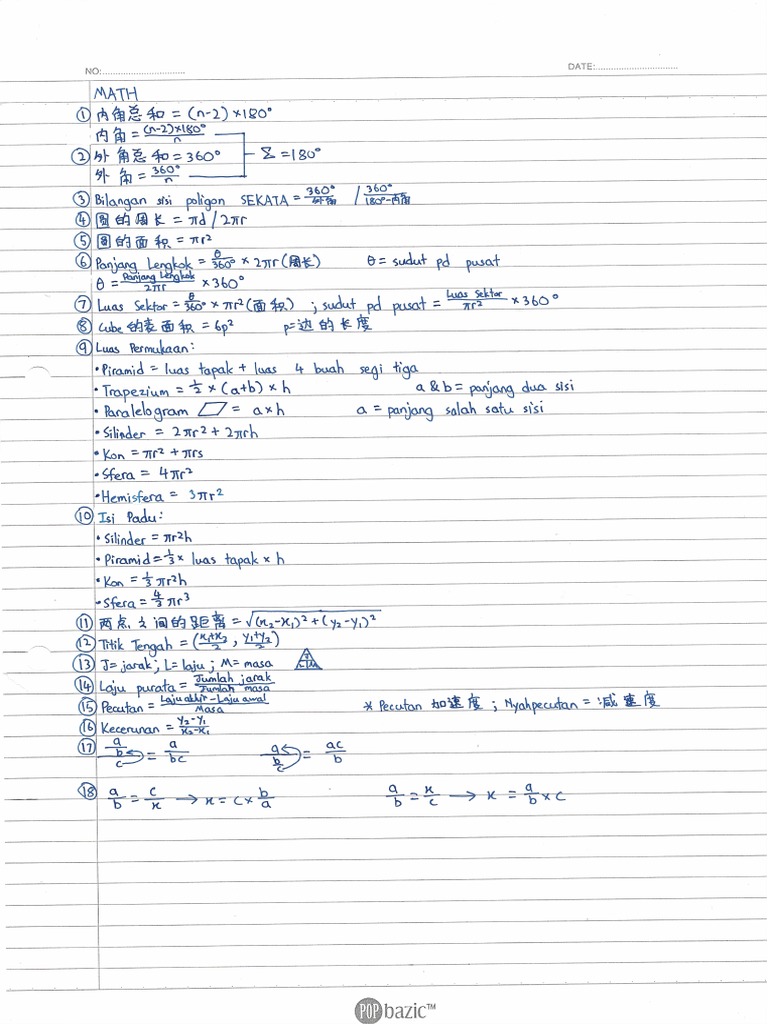 NO:
DATE:
MATH
① 内角总和 = (n-2) × 180°
内角 = (n-2)×180° / n
② 外角总和 = 360° Σ = 180°
外角 = 360° / n
③ Bilangan sisi poligon SEKATA = 360° / 外角 / 360° / 180°-内角
④ 圆的周长 = πd / 2πr
⑤ 圆的面积 = πr²
⑥ Panjang Lengkok = θ/360° × 2πr (周长) θ = sudut pd pusat
θ = Panjang Lengkok / 2πr × 360°
⑦ Luas Sektor = θ/360° × πr² (面积) ; sudut pd pusat = Luas Sektor / πr² × 360°
⑧ Cube的表面积 = 6p² p = 边的长度
⑨ Luas Permukaan:
• Piramid = luas tapak + luas 4 buah segi tiga
• Trapezium = 1/2 × (a+b) × h a & b = panjang dua sisi
• Paralelogram ▱ = a×h a = panjang salah satu sisi
• Silinder = 2πr² + 2πrh
• Kon = πr² + πrs
• Sfera = 4πr²
• Hemisfera = 3πr²
⑩ Isi Padu:
• Silinder = πr²h
• Piramid = 1/3 × luas tapak × h
• Kon = 1/3 πr²h
• Sfera = 4/3 πr³
⑪ 两点之间的距离 = √(x₂-x₁)² + (y₂-y₁)²
⑫ Titik Tengah = (x₁+x₂ / 2 , y₁+y₂ / 2)
⑬ J = jarak; L = laju; M = masa J L M
⑭ Laju purata = Jumlah jarak / Jumlah masa
⑮ Pecutan = Laju akhir - Laju awal / Masa * Pecutan 加速度 ; Nyahpecutan = 减速度
⑯ Kecerunan = y₂-y₁ / x₂-x₁
⑰ a/b / c = a / bc a / b/c = ac / b
⑱ a/b = c/x → x = c × b/a a/b = x/c → x = a/b × c
POP bazic™